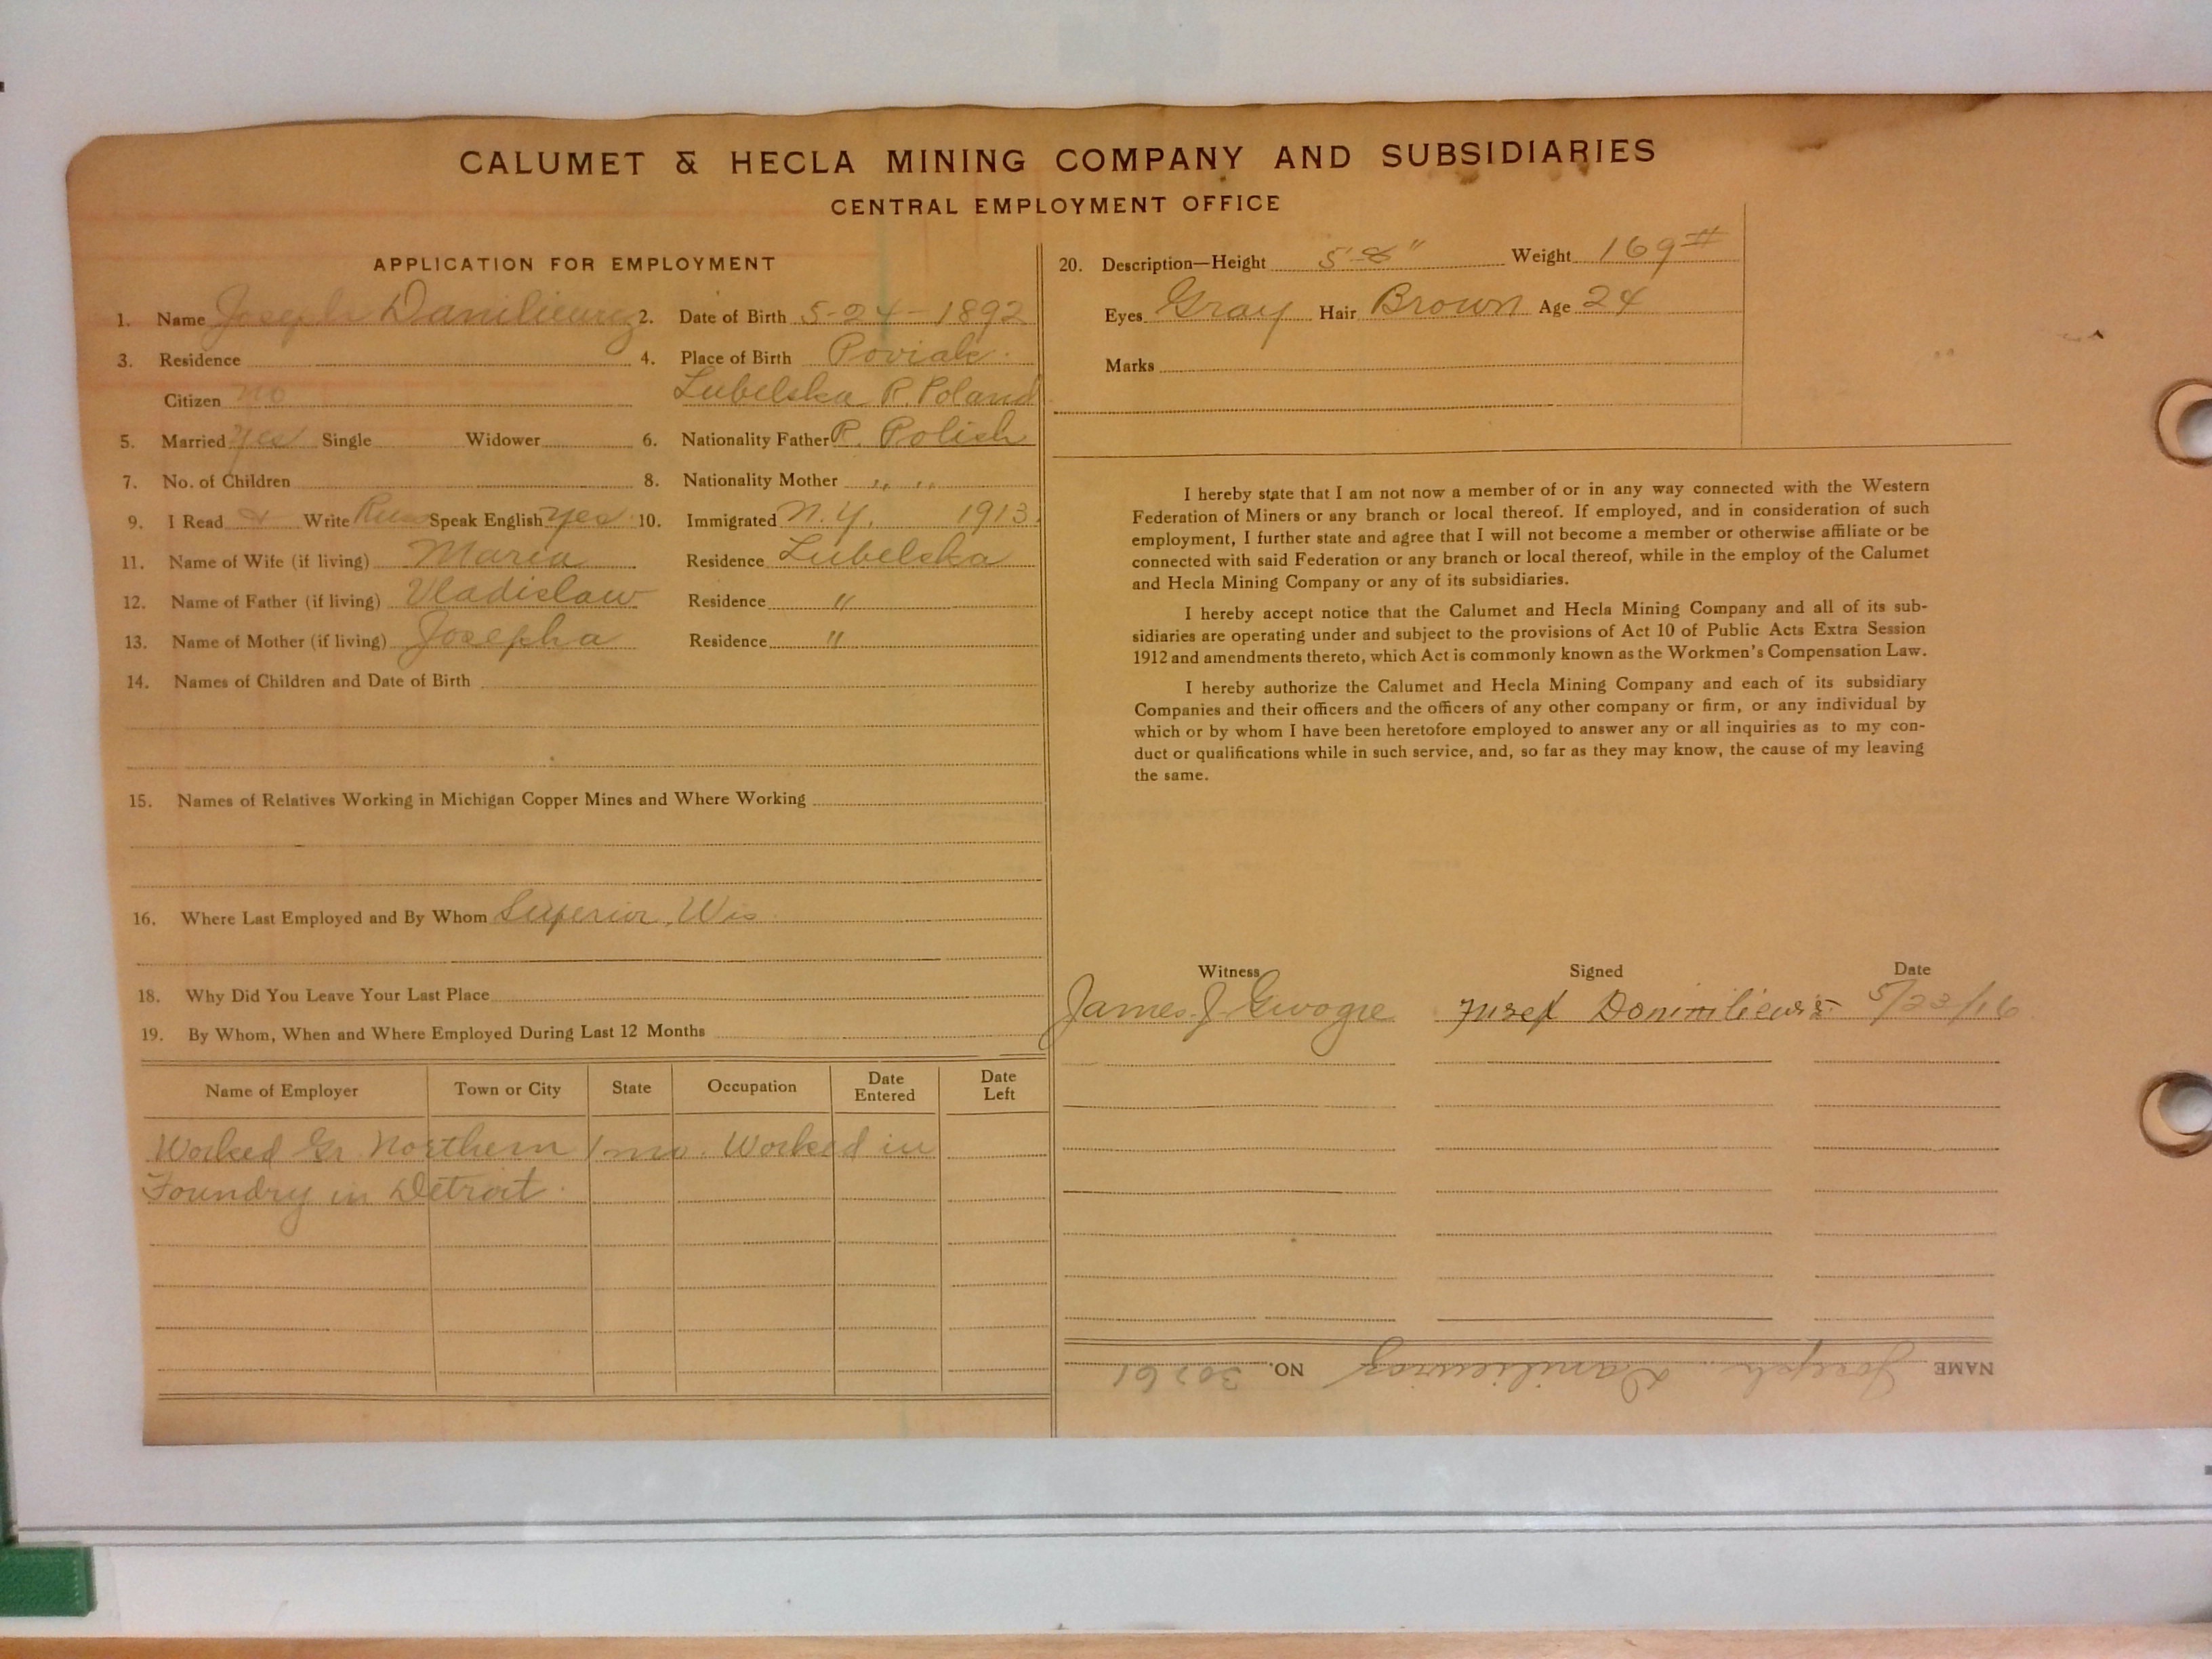 CALUMET & HECLA MINING COMPANY AND SUBSIDIARIES
CENTRAL EMPLOYMENT OFFICE
APPLICATION FOR EMPLOYMENT
1. Name Joseph Daniliewicz 2. Date of Birth 5-24-1892
3. Residence 4. Place of Birth Poviak
Citizen no Lubelska R. Poland
5. Married yes Single Widower 6. Nationality Father R. Polish
7. No. of Children 8. Nationality Mother " "
9. I Read & Write Russ Speak English yes 10. Immigrated N.Y. 1913
11. Name of Wife (if living) Maria Residence Lubelska
12. Name of Father (if living) Vladislaw Residence "
13. Name of Mother (if living) Josepha Residence "
14. Names of Children and Date of Birth
15. Names of Relatives Working in Michigan Copper Mines and Where Working
16. Where Last Employed and By Whom Superior, Wis
18. Why Did You Leave Your Last Place
19. By Whom, When and Where Employed During Last 12 Months
Name of Employer Town or City State Occupation Date Entered Date Left
Worked Gr. Northern 1 mo. Worked in
Foundry in Detroit.
20. Description—Height 5'-8" Weight 169#
Eyes Gray Hair Brown Age 24
Marks
I hereby state that I am not now a member of or in any way connected with the Western
Federation of Miners or any branch or local thereof. If employed, and in consideration of such
employment, I further state and agree that I will not become a member or otherwise affiliate or be
connected with said Federation or any branch or local thereof, while in the employ of the Calumet
and Hecla Mining Company or any of its subsidiaries.
I hereby accept notice that the Calumet and Hecla Mining Company and all of its sub-
sidiaries are operating under and subject to the provisions of Act 10 of Public Acts Extra Session
1912 and amendments thereto, which Act is commonly known as the Workmen's Compensation Law.
I hereby authorize the Calumet and Hecla Mining Company and each of its subsidiary
Companies and their officers and the officers of any other company or firm, or any individual by
which or by whom I have been heretofore employed to answer any or all inquiries as to my con-
duct or qualifications while in such service, and, so far as they may know, the cause of my leaving
the same.
Witness Signed Date
James J 5/23/16
NAME Joseph Daniliewicz NO. 30261